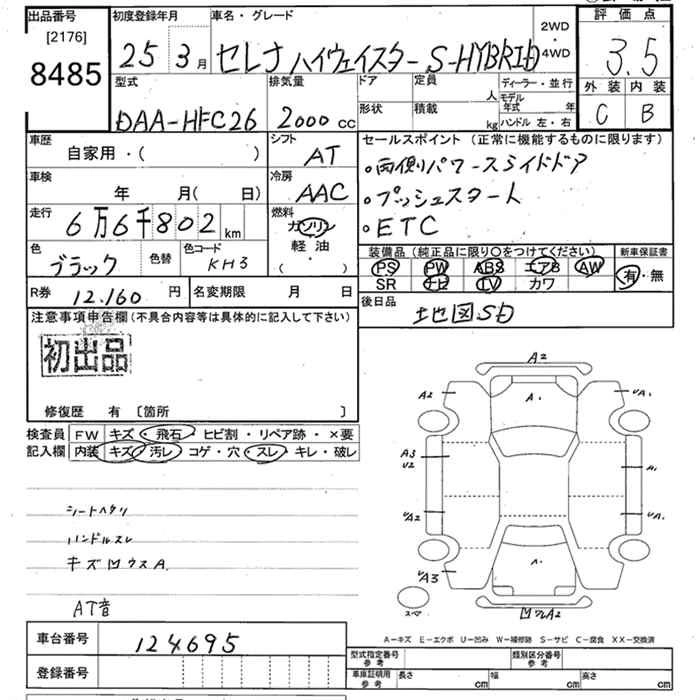 出品番号
[2176]
8485
初度登録年月
25 年 3 月
車名・グレード
セレナ ハイウェイスター S-HYBRID
2WD
・
4WD
評価点
3.5
外装 内装
C B
型式
DAA-HFC26
排気量
2000 cc
ドア
定員
人
形状
積載
kg
ディーラー・並行
モデル年式 年
ハンドル 左・右
車歴
自家用・( )
シフト
AT
車検
年 月(日)
冷房
AAC
走行
6万6千802 km
燃料
ガソリン
軽油
( )
色
ブラック
色替
色コード
KH3
R券
12.160 円
名変期限 月 日
セールスポイント (正常に機能するものに限ります)
・両側パワースライドドア
・プッシュスタート
・ETC
装備品 (純正品に限り○をつけてください)
新車保証書
PS PW ABS エアB AW
SR ナビ TV カワ
有・無
後日品
地図SD
注意事項申告欄 (不具合内容等は具体的に記入して下さい)
初出品
修復歴 有 〔箇所 〕
検査員記入欄
FW キズ・飛石・ヒビ割・リペア跡・×要
内装 キズ・汚レ・コゲ・穴・スレ・キレ・破レ
シートヘタリ
ハンドルスレ
キズ凹ウスA
AT音
A2
A2
A.
UA1
A3
U2
A1
UA2
UA1
UA3
スペア
A-キズ E-エクボ U-凹み W-補修跡 S-サビ C-腐食 XX-交換済
車台番号
124695
登録番号
型式指定番号
参考
類別区分番号
参考
車庫証明用
参考
長さ cm
幅 cm
高さ cm